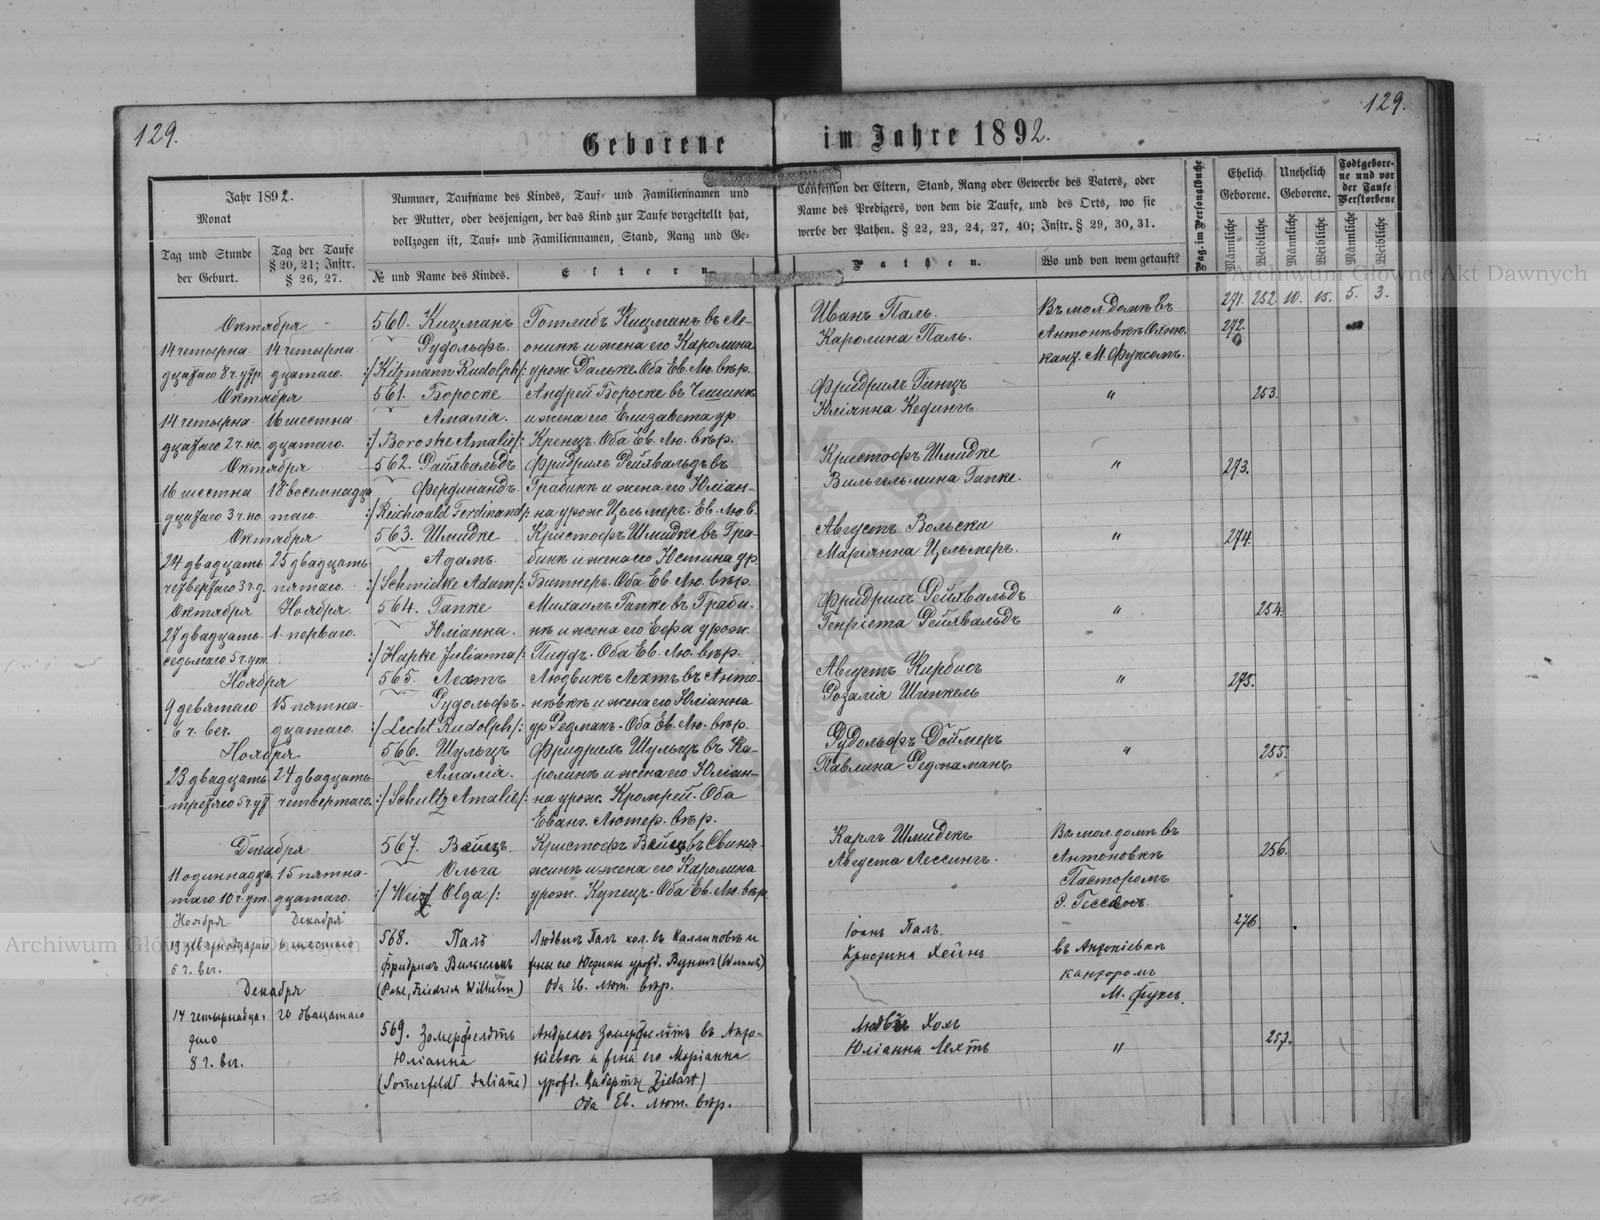 129.
129.
Geborene im Jahre 1892.
Jahr 1892.
Monat
Tag und Stunde der Geburt.
Tag der Taufe § 20, 21; Instr. § 26, 27.
Nummer, Taufname des Kindes, Tauf- und Familiennamen und
der Mutter, oder desjenigen, der das Kind zur Taufe vorgestellt hat,
vollzogen ist, Tauf- und Familiennamen, Stand, Rang und Ge-
№ und Name des Kindes.
Eltern.
Confession der Eltern, Stand, Rang oder Gewerbe des Vaters, oder
Name des Predigers, von dem die Taufe, und des Orts, wo sie
werbe der Pathen. § 22, 23, 24, 27, 40; Instr. § 29, 30, 31.
Pathen.
Wo und von wem getauft?
Pag. im Personalbuche
Ehelich Geborene.
Unehelich Geborene.
Todtgeborene und vor der Taufe Verstorbene
Männliche
Weibliche
Männliche
Weibliche
Männliche
Weibliche
271. 252. 10. 15. 5. 3.
Октября
14 четырна 14 четырна
дцатаго 8 ч. утр. дцатаго.
560. Кицманъ
Рудольфъ.
:/Kitzmann Rudolph/:
Готлибъ Кицманъ въ Ле-
онинѣ и жена его Каролина
урож. Дальке. Оба Ев. Лю. вѣр.
Иванъ Паль.
Каролина Паль.
Въ мол. Домѣ въ
Антоновкѣ
кант. М. Фуксомъ.
272.
Октября
14 четырна 16 шестна
дцатаго 2 ч. но. дцатаго.
561. Бороске
Амалія.
:/Boroske Amalie/:
Андрей Бороске въ
и жена его Елизавета ур.
Кренцъ. Оба Ев. Лю. вѣр.
Фридрихъ Гинцъ
Юліянна Кедингъ.
"
253.
Октября
16 шестна 18 восемнадца
дцатаго 3 ч. но. таго.
562. Райхвальдъ
Фердинандъ.
:/Reichwald Ferdinand/:
Фридрихъ Рейхвальдъ въ
Грабинѣ и жена его Юліан-
на урож. Цельмеръ. Ев. Лю. в.
Кристофъ Шмидке
Вильгельмина Гапке.
"
273.
Октября
24 двадцать 25 двадцать
четвертаго 3 ч. д. пятаго.
563. Шмидке
Адамъ.
:/Schmidke Adam/:
Кристофъ Шмидке въ Гра-
бинѣ и жена его Юстина ур.
Битнеръ. Оба Ев. Лю. вѣр.
Августъ Вольски
Маріянна Цельмеръ.
"
274.
Октября Ноября.
27 двадцать 1. перваго.
седьмаго 5 ч. ут.
564. Гапке
Юліанна.
:/Hapke Julianna/:
Михаилъ Гапке въ Граби-
нѣ и жена его Ефа урож.
Пиддъ. Оба Ев. Лю. вѣр.
Фридрихъ Рейхвальдъ
Генріета Рейхвальдъ
"
254.
Ноября
9 девятаго 15 пятна-
6 ч. веч. дцатаго.
565. Лехтъ
Рудольфъ.
:/Lecht Rudolph/:
Людвикъ Лехтъ въ Анто-
новкѣ и жена его Юліанна
ур. Редманъ. Оба Ев. Лю. вѣр.
Августъ Кирбисъ
Розалія Шинкель
"
275.
Ноября
23 двадцать 24 двадцать
третяго 5 ч. ут. четвертаго.
566. Шульцъ
Амалія.
:/Schultz Amalie/:
Фридрихъ Шульцъ въ Ка-
ролинѣ и жена его Юліан-
на урож. Кромрей. Оба
Еванг. Лютер. вѣр.
Рудольфъ Доймеръ
Павлина Редманъ
"
255.
Декабря
11 одиннадца 15 пятна-
таго 10 ч. ут. дцатаго.
567. Вейсъ.
Ольга
:/Weiss Olga/:
Кристофъ Вейсъ въ Свиня-
жинѣ и жена его Каролина
урож. Купецъ. Оба Ев. Лю. вѣр.
Карлъ Шмидекъ
Августа Лессингъ.
Въ мол. домѣ въ
Антоновкѣ
Пасторомъ
256.
Ноября Декабря
19 девятнадцатаго 6 шестаго
5 ч. веч.
568. Паль
Фридрихъ Вильгельмъ
(Pahl, Friedrich Wilhelm)
Людвигъ Паль кол. въ Калиновкѣ и
жены его Юстины урожд.
Оба Ев. Лют. вѣр.
Іоанъ Паль.
Кристина Хейнъ
въ Антоніевкѣ
канторомъ
М. Фуксъ.
276.
Декабря
14 четырнадца- 20 двацатаго
таго
8 ч. веч.
569. Зомерфельдтъ
Юліанна
(Somerfeldt Juliana)
Андреасъ Зомерфельдтъ въ Анто-
ніевкѣ и жена его Маріанна
урожд. Цибертъ (Ziebart)
Оба Ев. Лют. вѣр.
Людвигъ Холъ
Юліанна Лехтъ
"
257.
Archiwum Główne Akt Dawnych
Archiwum Główne Akt Dawnych